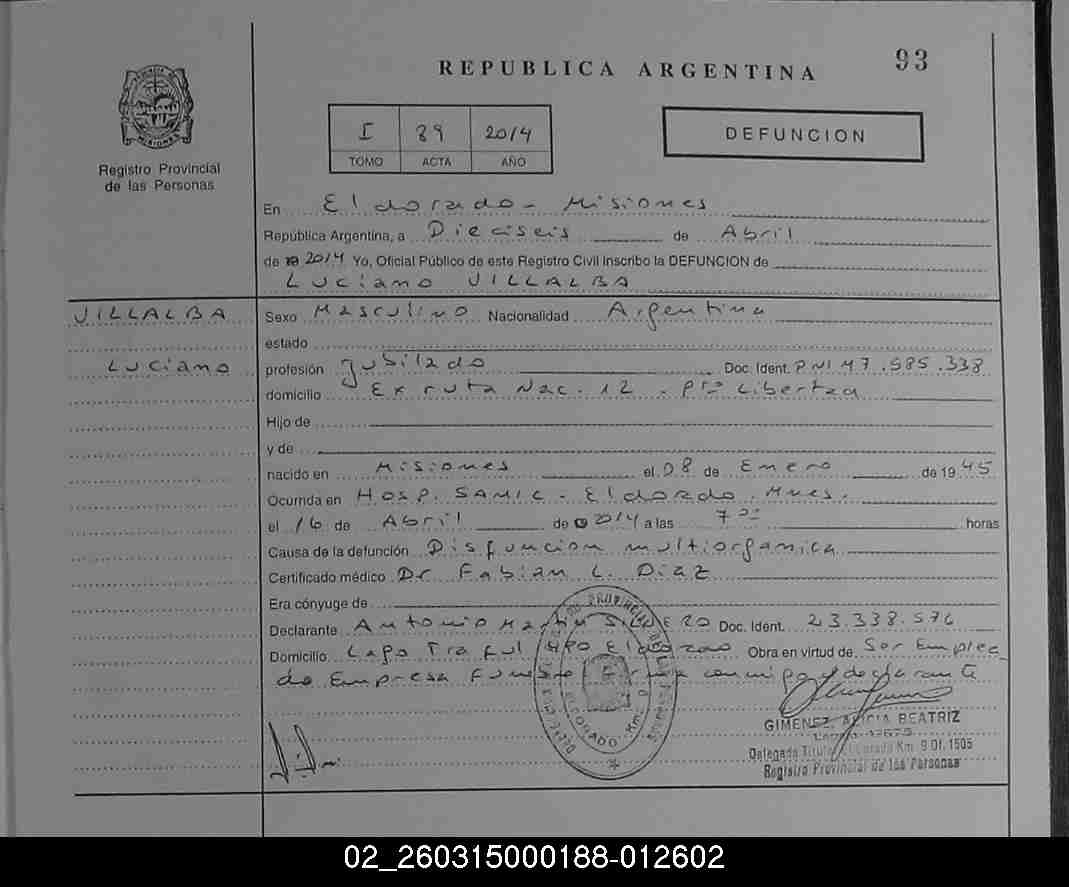 93
REPUBLICA ARGENTINA
Registro Provincial
de las Personas
I 89 2014
TOMO ACTA AÑO
DEFUNCION
En Eldorado - Misiones
República Argentina, a Dieciseis de Abril
de 2014 Yo, Oficial Público de este Registro Civil inscribo la DEFUNCION de
Luciano VILLALBA
VILLALBA
Luciano
Sexo Masculino Nacionalidad Argentina
estado
profesión Jubilado Doc. Ident. DNI 47.585.338
domicilio Ex ruta Nac. 12 - Pto Libertad
Hijo de
y de
nacido en Misiones el 08 de Enero de 1945
Ocurrida en Hosp. SAMIC - Eldorado. Mnes.
el 16 de Abril de 2014 a las 7 horas
Causa de la defunción Disfuncion multiorganica
Certificado médico Dr Fabian L. Diaz
Era cónyuge de
Declarante Antonio Martin Doc. Ident. 23.338.576
Domicilio Lago Traful Eldorado Obra en virtud de Ser Emplea
do Empresa Funebre Firma conmigo y declarante
GIMENEZ, ALICIA BEATRIZ
Delegada Titular Eldorado Km 9 Of. 1505
Registro Provincial de las Personas
02_260315000188-012602